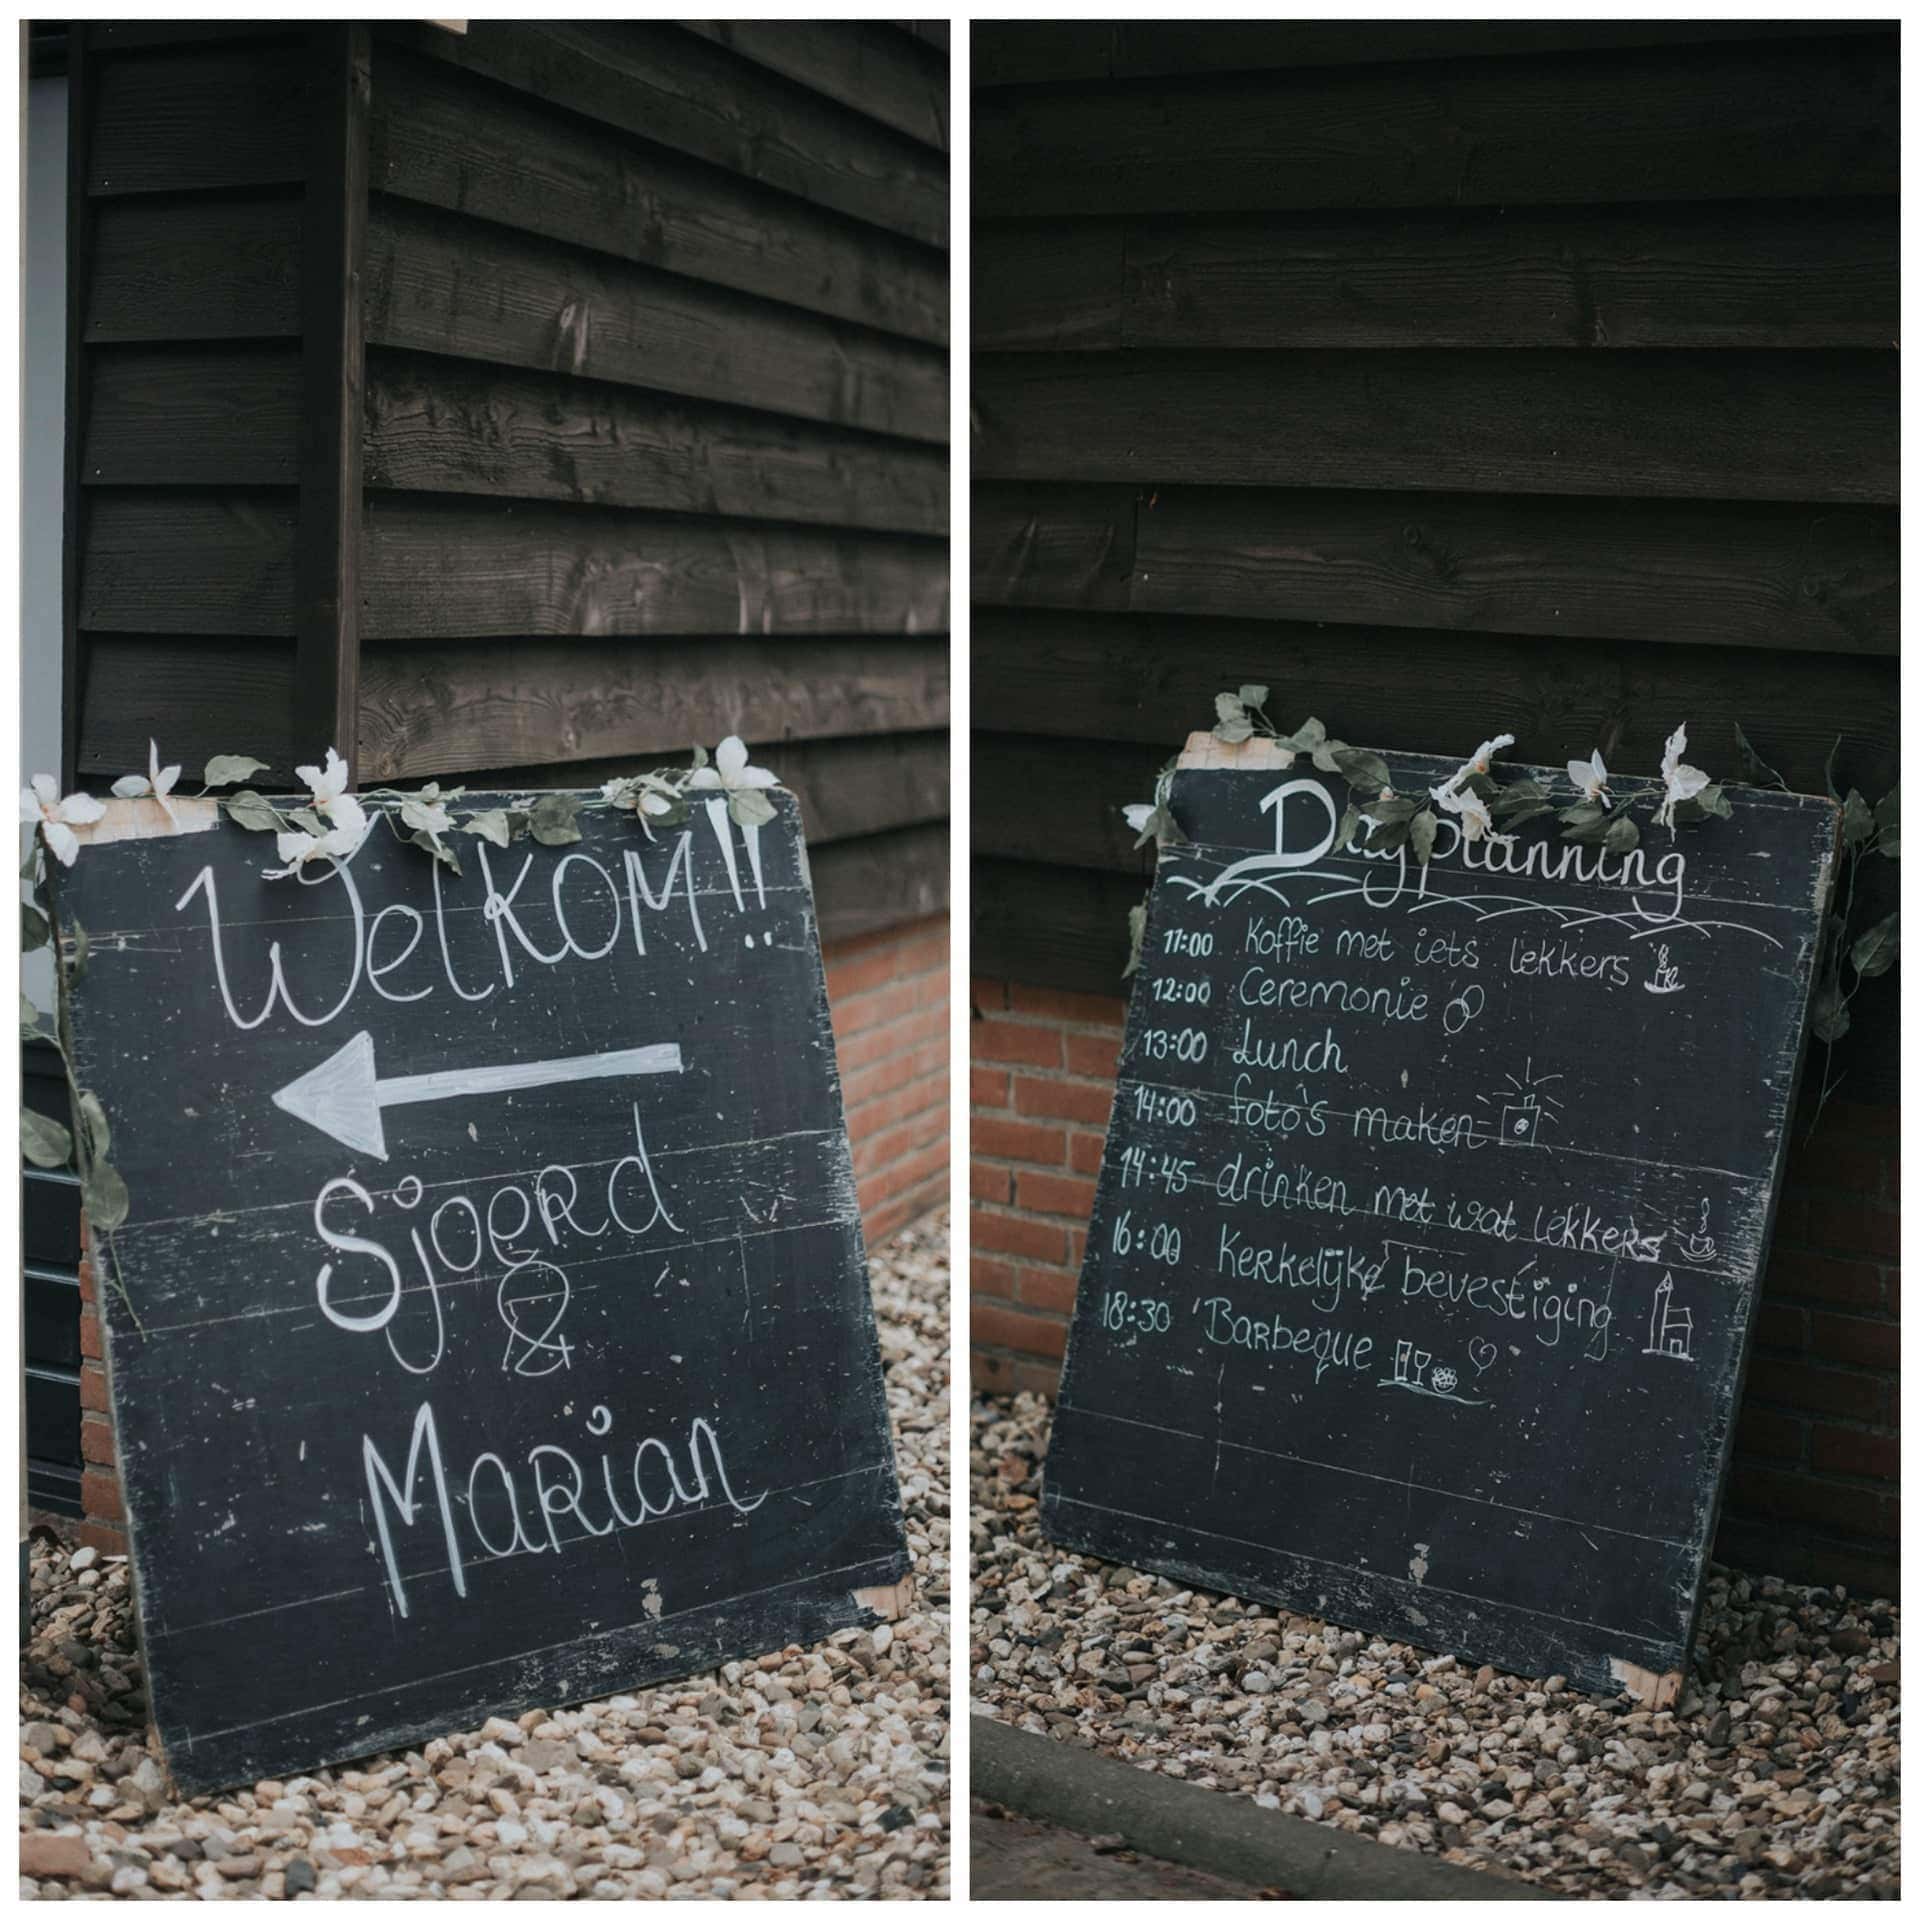 Welkom!!
Sjoerd
&
Marian
Dagplanning
11:00 Koffie met iets lekkers
12:00 Ceremonie
13:00 Lunch
14:00 foto's maken
14:45 drinken met wat lekkers
16:00 Kerkelijke bevestiging
18:30 Barbeque